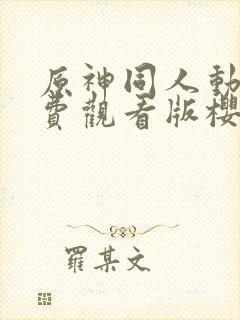 原神同人動
費觀看版櫻
羅某文